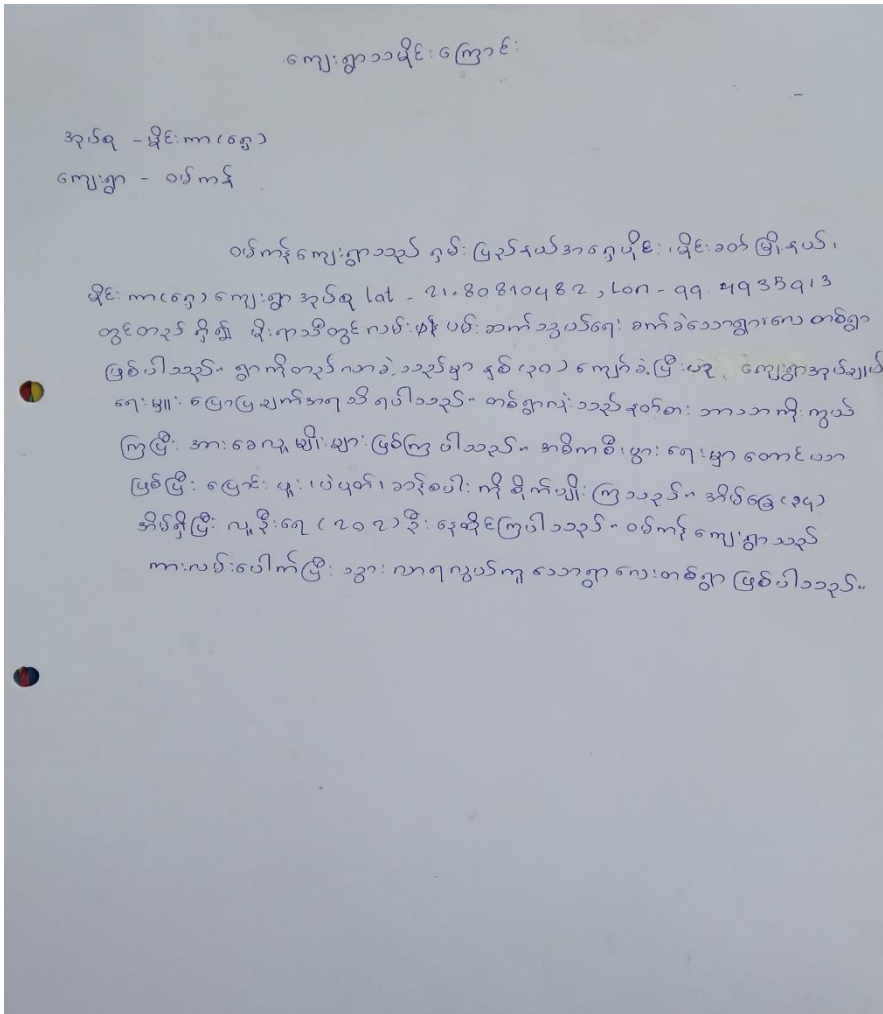 ကျေးရွာသမိုင်းကြောင်း
အုပ်စု - မိုင်းကာ(ရှေ့)
ကျေးရွာ - ဝမ်ကန်
ဝမ်ကန်ကျေးရွာသည် ရှမ်းပြည်နယ်အရှေ့ပိုင်း၊ မိုင်းခတ်မြို့နယ်၊
မိုင်းကာ(ရှေ့) ကျေးရွာအုပ်စု lat - 21.8081048 2, Lon - 99.4935913
တွင်တည်ရှိ၍ မိုးရာသီတွင်လမ်းပန်းဆက်သွယ်ရေး ခက်ခဲသောရွာလေးတစ်ရွာ
ဖြစ်ပါသည်။ ရွာကိုတည်လာခဲ့သည်မှာ နှစ်(၃၀)ကျော်ခဲ့ပြီးဟု ကျေးရွာအုပ်ချုပ်
ရေးမှူး ပြောပြချက်အရသိရပါသည်။ တစ်ရွာလုံးသည်နတ်စားဘာသာကိုကွယ်
ကြပြီး အားခေလူမျိုးများဖြစ်ကြပါသည်။ အဓိကစီးပွားရေးမှာ တောင်ယာ
ဖြစ်ပြီး ပြောင်းဖူး၊ ပဲပုတ်၊ ဘန်စပါးကိုစိုက်ပျိုးကြသည်။ အိမ်ခြေ(၃၄)
အိမ်ရှိပြီး လူဦးရေ(၂၀၂)ဦးနေထိုင်ကြပါသည်။ ဝမ်ကန်ကျေးရွာသည်
ကားလမ်းပေါက်ပြီး သွားလာရလွယ်ကူသောရွာလေးတစ်ရွာဖြစ်ပါသည်။